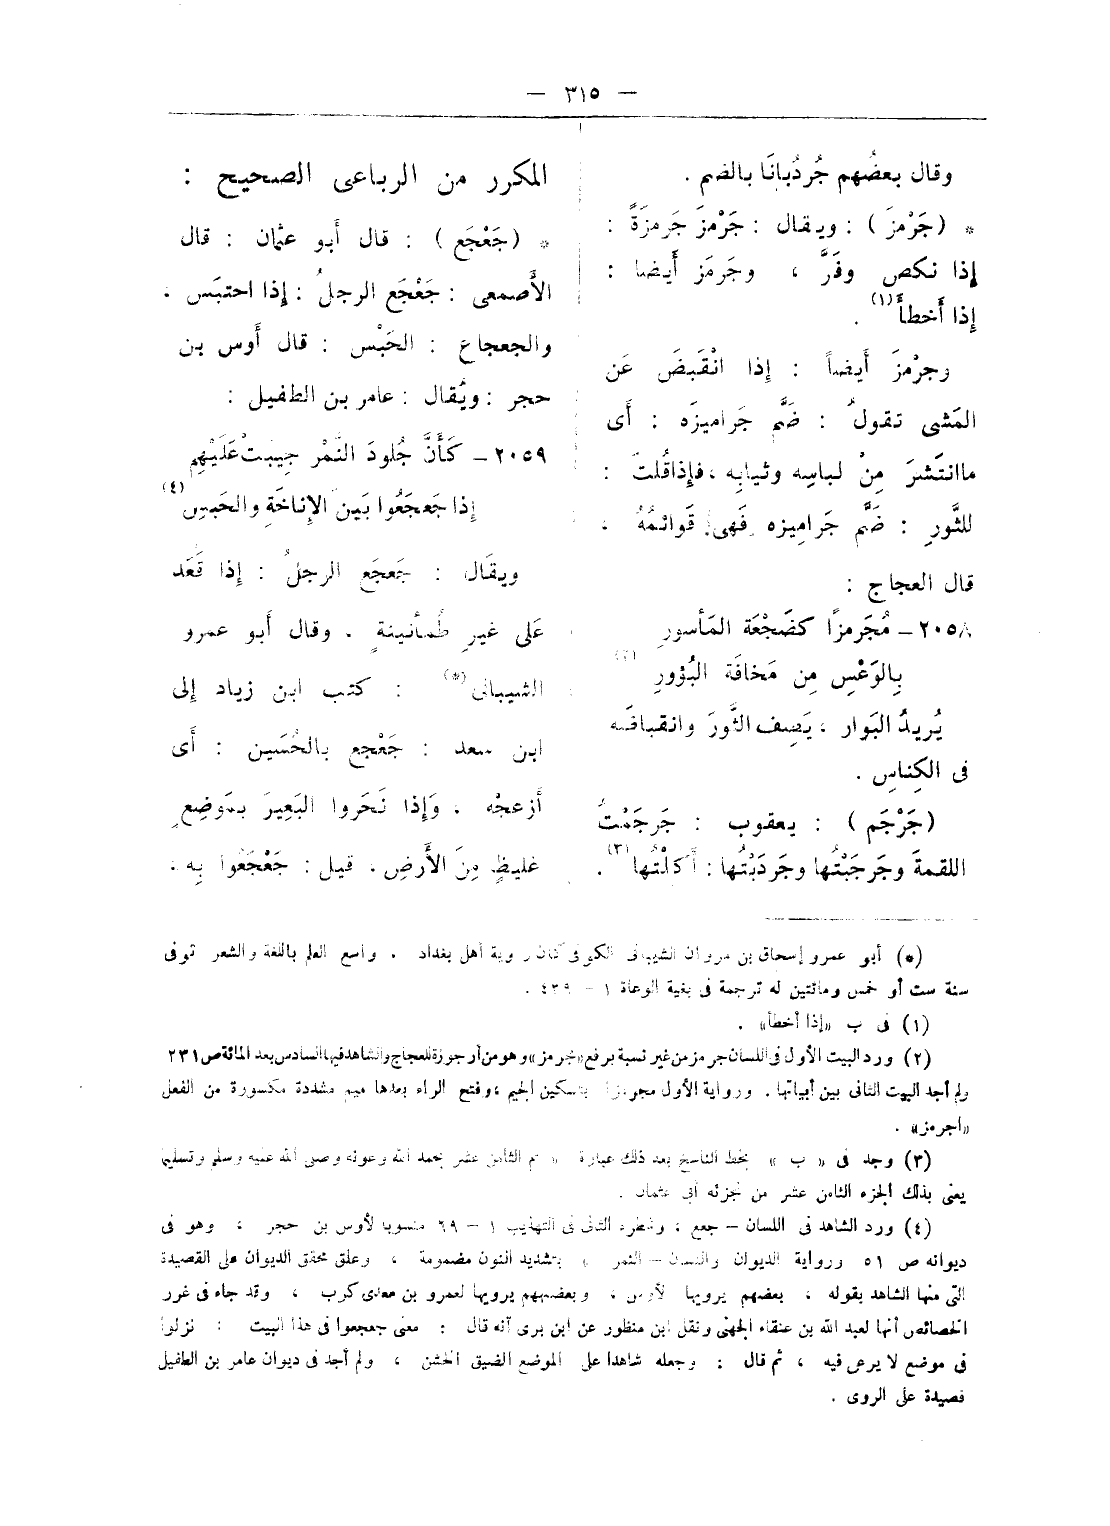 — ٣١٥ —
وقال بعضُهم جُردُبانَا بالضم .
* (جَرْمزَ) : ويقال : جَرْمزَ جَرمزَةً :
إذا نكص وفَرَّ ، وجَرمَز أَيضا :
إِذا أَخطأَ(١) .
وجرْمزَ أَيضاً : إِذا انْقَبضَ عَن
المَشى تقولُ : ضَّم جَراميزَه : أَى
ماانتَشرَ مِنْ لباسِه وثيابِه ، فإِذاقُلتَ :
للثَّورِ : ضَّم جَرامِيزه فهى قَوائمُهُ .
قال العجاج :
٢٠٥٨ – مُجَرمزًا كضَجْعَة المَأسورِ
بِالوَعْسِ مِن مَخافَة البُؤورِ(٢)
يُريدُ البَوار ، يَصِف الثَّورَ وانقباضَه
فى الكِناسِ .
(جَرْجَم) : يعقوب : جَرجَمْتُ
اللقمةَ وجَرجَبْتُها وجَردَبْتُها : أَكلْتُها(٣) .
المكرر من الرباعى الصحيح :
* (جَعْجَع) : قال أَبو عثمان : قال
الأَصمعى : جَعْجَع الرجلُ : إِذا احتبَس .
والجعجاع : الحَبْس : قال أَوس بن
حجر : ويُقال : عامر بن الطفيل :
٢٠٥٩ – كَأَنَّ جُلودَ النَّمْر جِيبَتْ عَلَيْهِم
إِذا جَعجَعُوا بَينَ الإِناخَةِ والحَبسِ(٤)
ويقَال : جَعجَع الرجلُ : إِذا قَعَد
عَلى غيرِ طُمأنينةٍ . وقال أَبو عمرو
الشيبانى(*) : كتب ابن زياد إِلى
ابن سعد : جَعْجع بالحُسَين : أَى
أَزعجْه ، وَإِذا نَحَروا البَعِيرَ بمَوضِعٍ
غليظٍ مِنَ الأَرضِ . قيل : جَعْجَعُوا بِه .
(*) أبو عمرو إسحاق بن مروان الشيبانى الكوفى كان راوية أهل بغداد . واسع العلم باللغة والشعر توفى
سنة ست أو خمس ومائتين له ترجمة فى بغية الوعاة ١ – ٤٣٩ .
(١) فى ب «إذا أخطأ» .
(٢) ورد البيت الأول فى اللسان جرمز من غير نسبة برفع «جرمز» وهو من أرجوزة للعجاج والشاهد فيها السادس بعد المائة ص ٢٣١
ولم أجد البيت الثانى بين أبياتها . ورواية الأول مجرمزا بتسكين الجيم ، وفتح الراء بعدها ميم مشددة مكسورة من الفعل
«اجرمز» .
(٣) وجد فى « ب » بخط الناسخ بعد ذلك عبارة « تم الثامن عشر بحمد الله وعونه وصلى الله عليه وسلم وتسليما
يعنى بذلك الجزء الثامن عشر من تجزئه أبى عثمان .
(٤) ورد الشاهد فى اللسان – جعع ، وشطره الثانى فى التهذيب ١ – ٦٩ منسوبا لأوس بن حجر ، وهو فى
ديوانه ص ٥١ ورواية الديوان واللسان – النمر » بتشديد النون مضمومة ، وعلق محقق الديوان على القصيدة
التى منها الشاهد بقوله ، بعضهم يرويها لأوس ، وبعضهم يرويها لعمرو بن معدى كرب ، وقد جاء فى غرر
الخصائص أنها لعبد الله بن عنقاء الجهنى ونقل ابن منظور عن ابن برى أنه قال : معنى جعجعوا فى هذا البيت : نزلوا
فى موضع لا يرعى فيه ، ثم قال : وجعله شاهدا على الموضع الضيق الخشن ، ولم أجد فى ديوان عامر بن الطفيل
قصيدة على الروى .